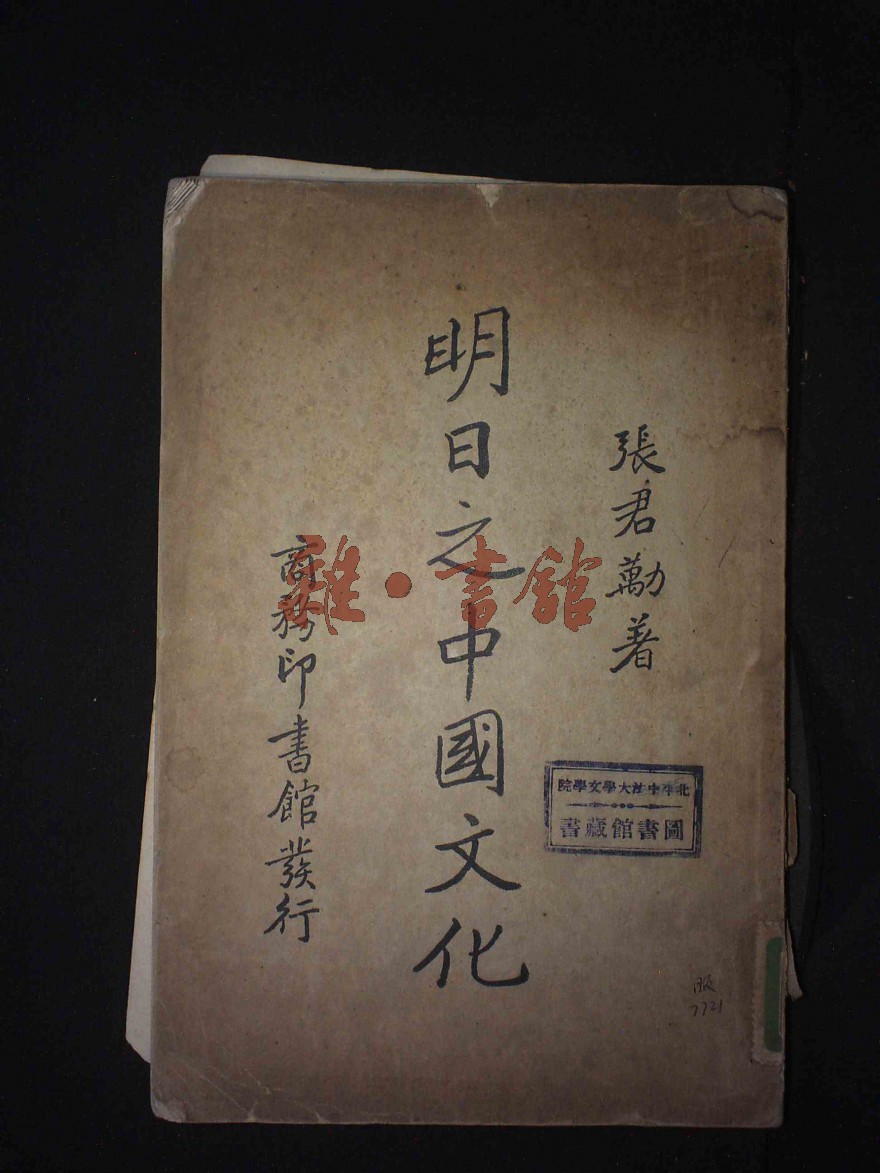 張君勱著
明日之中國文化
商務印書館發行
北平中法大學文學院
圖書館藏書
雜·書館
7721